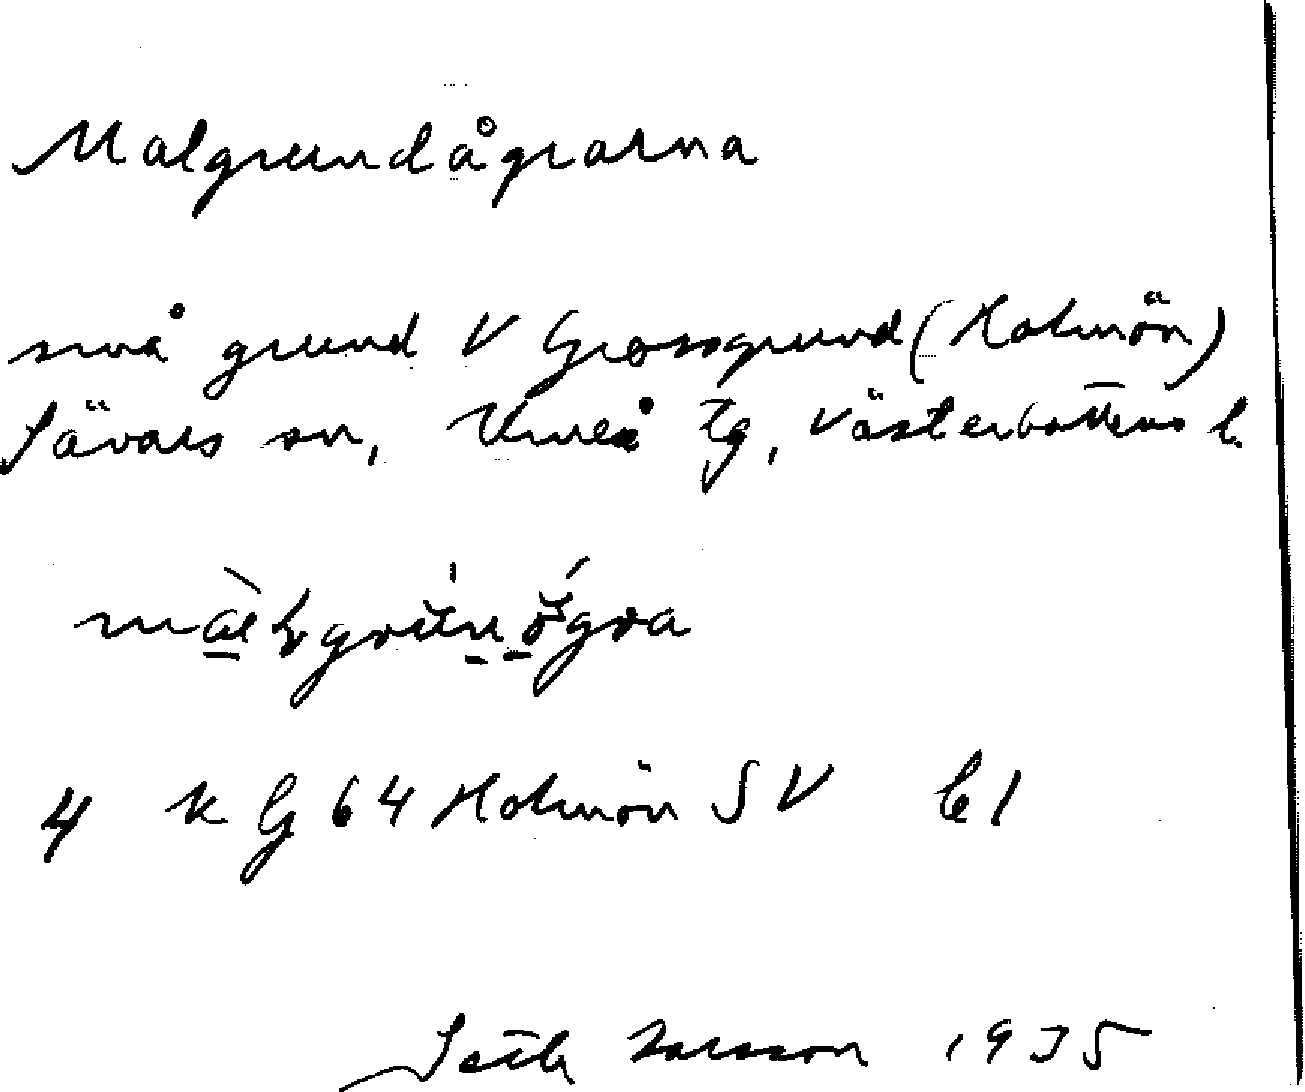 Malgrundågrarna
små grund V Grossgrund (Holmön)
Sävars sn, Umeå tg, Västerbottens l.
4 k G 64 Holmön SV b1
Seth Larsson 1935